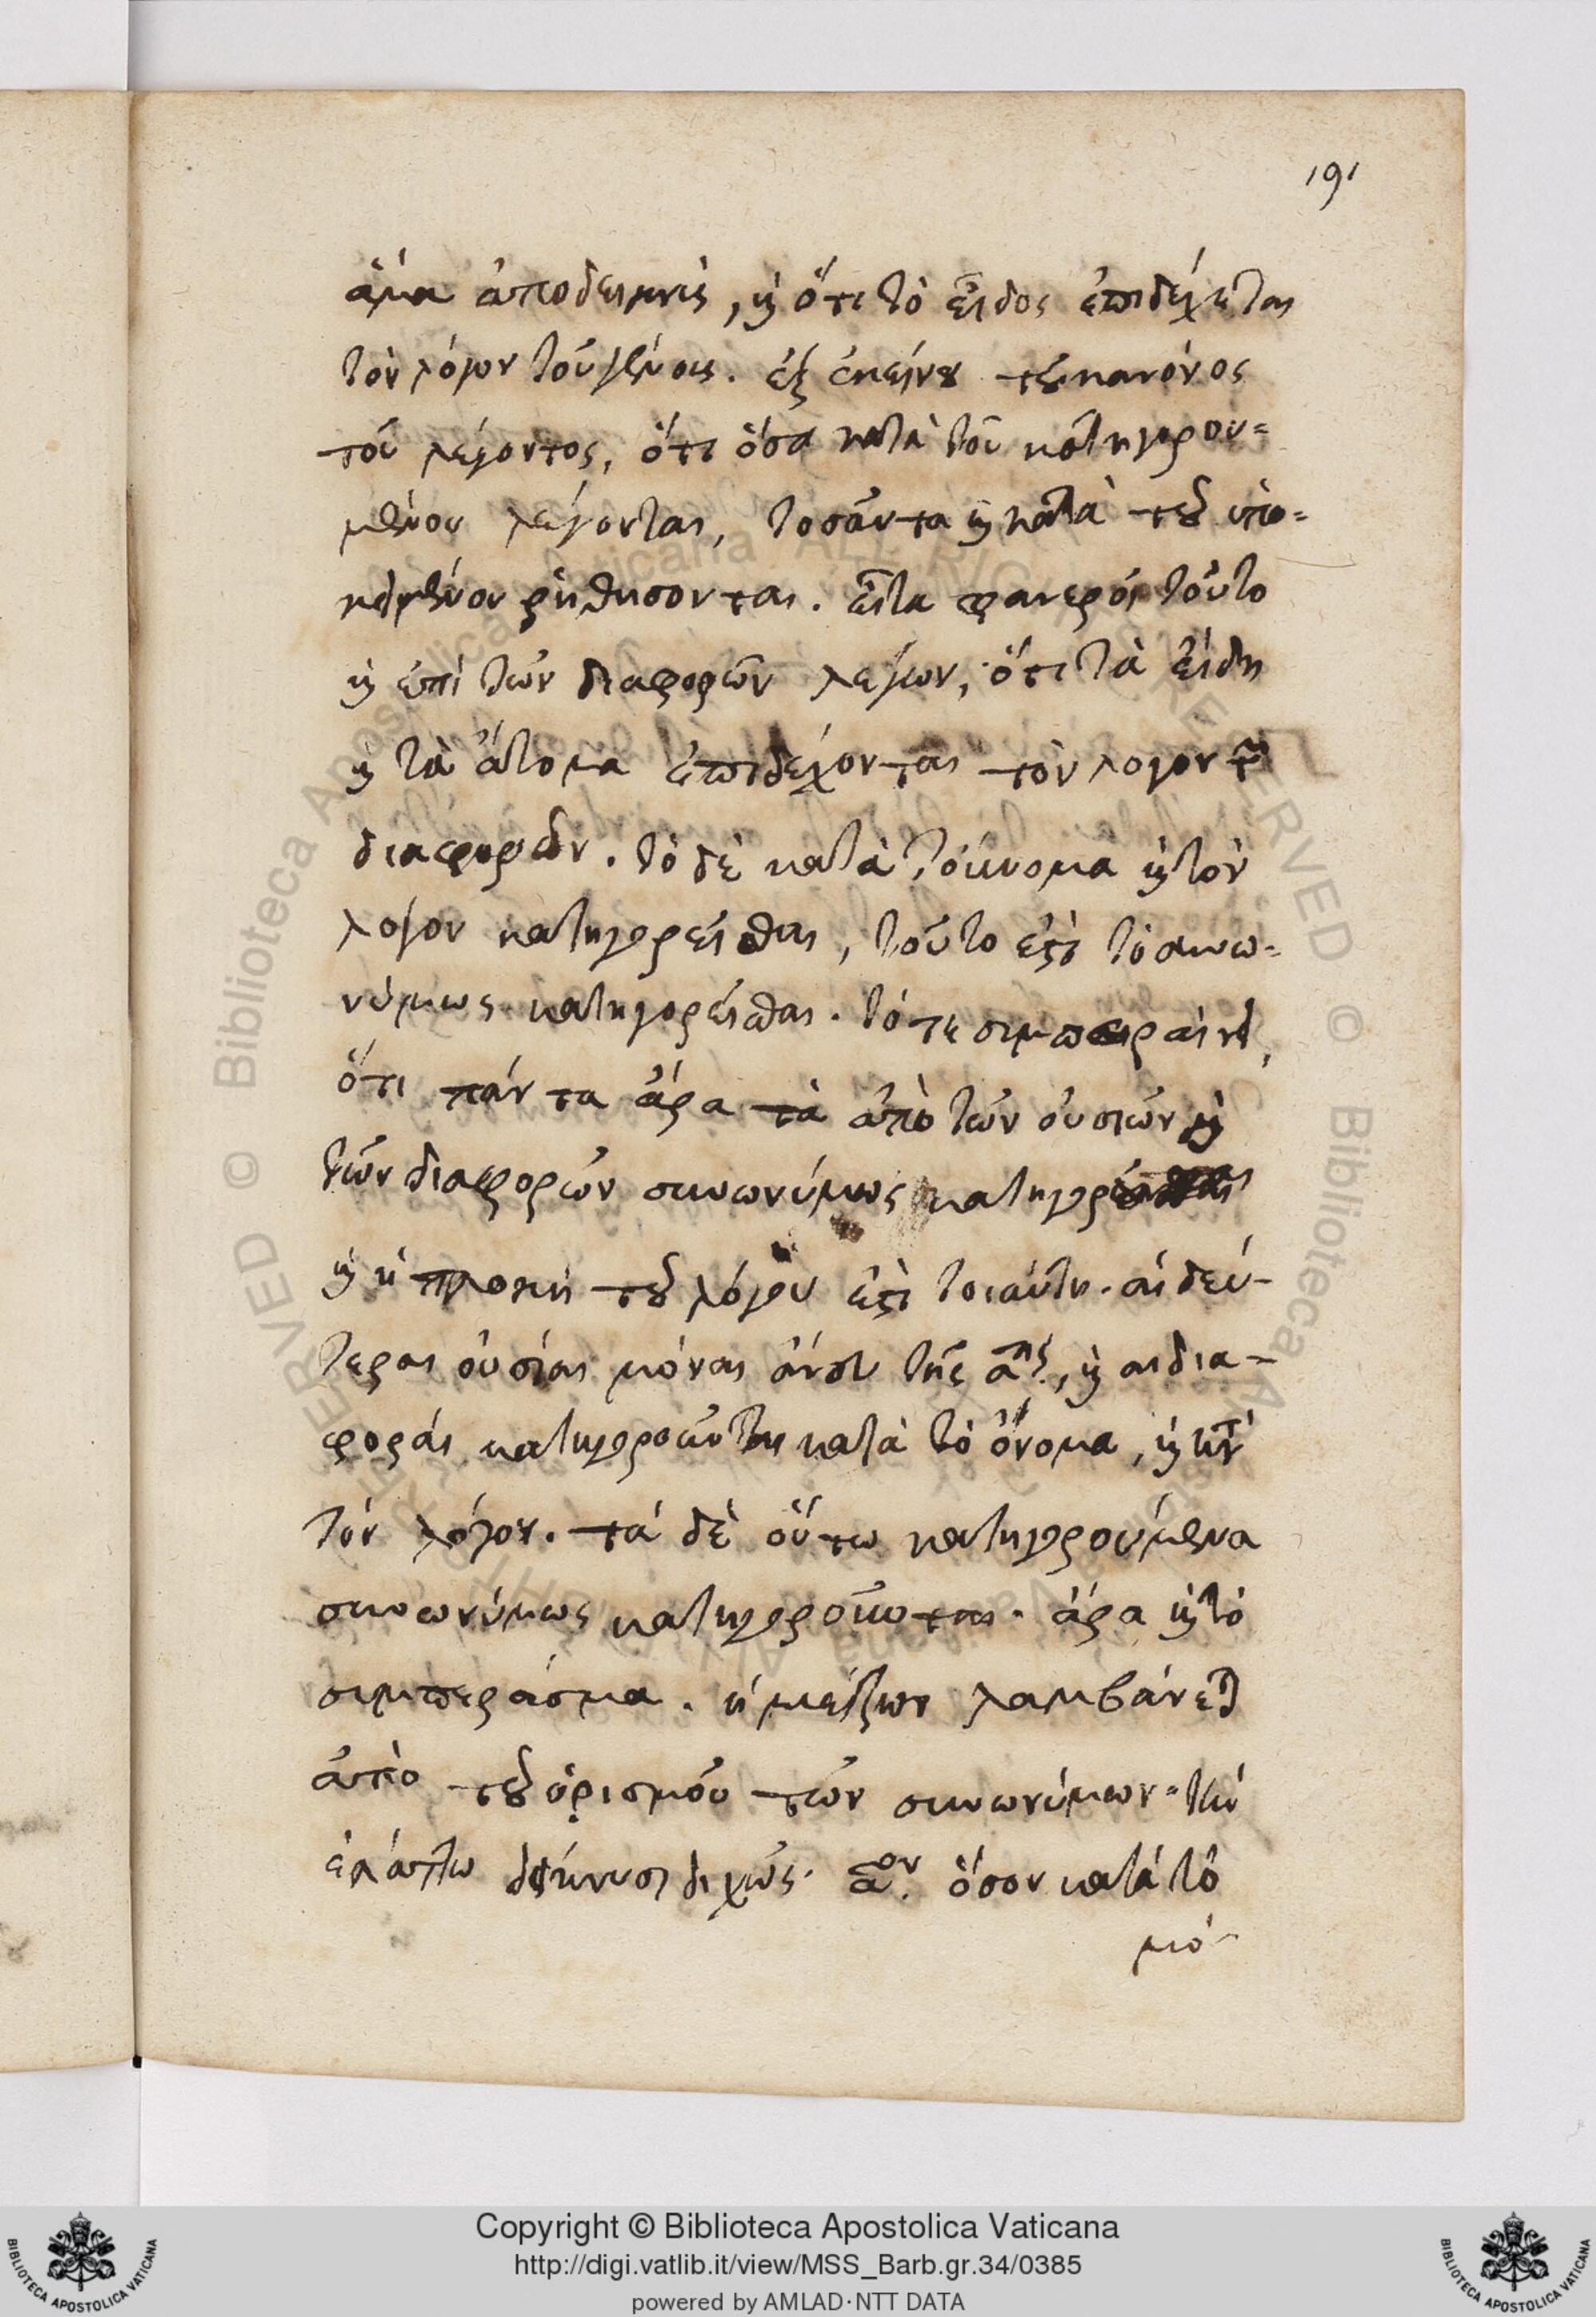 191
ἅμα ἀποδεικνὺς, κ ὅτι τὸ εἶδος ἐπιδέχεται
τὸν λόγον τοῦ γένους. ἐξ ἐκείνου τοῦ κανόνος
τοῦ λέγοντος, ὅτι ὅσα κατὰ τοῦ κατηγορου=
μένου λέγονται, τοσαῦτα κ κατὰ τοῦ ὑπο=
κειμένου ῥηθήσονται. εἶτα φανεροῖ τοῦτο
κ ἐπὶ τῶν διαφορῶν λέγων, ὅτι τὰ εἴδη
κ τὰ ἄτομα ἐπιδέχονται τὸν λόγον τῶν
διαφορῶν. τὸ δὲ κατὰ τοὔνομα κ τὸν
λόγον κατηγορεῖσθαι, τοῦτο ἐστὶ τὸ συνω=
νύμως κατηγορεῖσθαι. τότε συμπεραίνει,
ὅτι πάντα ἄρα τὰ ἀπὸ τῶν οὐσιῶν κ
τῶν διαφορῶν συνωνύμως
κ ἡ πλοκὴ τοῦ λόγου ἐστὶ τοιαύτη. αἱ δεύ-
τεραι οὐσίαι μόναι ἄνευ τῆς αης, κ αἱ δια-
φοραὶ κατηγοροῦνται κατὰ τὸ ὄνομα, κ κατὰ
τὸν λόγον. τὰ δὲ οὕτω κατηγορούμενα
συνωνύμως κατηγοροῦνται. ἄρα κ τὸ
συμπέρασμα. ἡ μείζων λαμβάνεται
ἀπὸ τοῦ ὁρισμοῦ τῶν συνωνύμων. τὴν
ἐλάττω δείκνυσι διχῶς. αον. ὅσον κατὰ τὸ
μό-
Copyright © Biblioteca Apostolica Vaticana
http://digi.vatlib.it/view/MSS_Barb.gr.34/0385
powered by AMLAD·NTT DATA